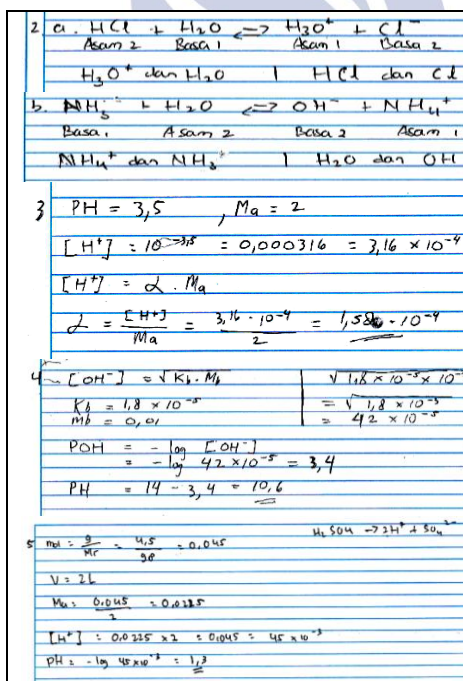 2 a. HCl + H₂O <=> H₃O⁺ + Cl⁻
Asam 2 Basa 1 Asam 1 Basa 2
H₃O⁺ dan H₂O | HCl dan Cl
b. NH₃ + H₂O <=> OH⁻ + NH₄⁺
Basa 1 Asam 2 Basa 2 Asam 1
NH₄⁺ dan NH₃ | H₂O dan OH
3 PH = 3,5 , Ma = 2
[H⁺] = 10^-3,5 = 0,000316 = 3,16 × 10⁻⁴
[H⁺] = α . Ma
α = [H⁺]/Ma = 3,16 · 10⁻⁴/2 = 1,58 · 10⁻⁴
4 [OH⁻] = √Kb . Mb √1,8 × 10⁻⁵ × 10
Kb = 1,8 × 10⁻⁵ = √1,8 × 10
Mb = 0,01 = 42 × 10⁻⁵
POH = - log [OH⁻]
= - log 42 × 10⁻⁵ = 3,4
PH = 14 - 3,4 = 10,6
5 mol = g/Mr = 4,5/98 = 0,045 H₂SO₄ → 2H⁺ + SO₄²⁻
V = 2L
Ma = 0,045/2 = 0,0225
[H⁺] = 0,0225 × 2 = 0,045 = 45 × 10⁻³
PH = - log 45 × 10⁻³ = 1,3